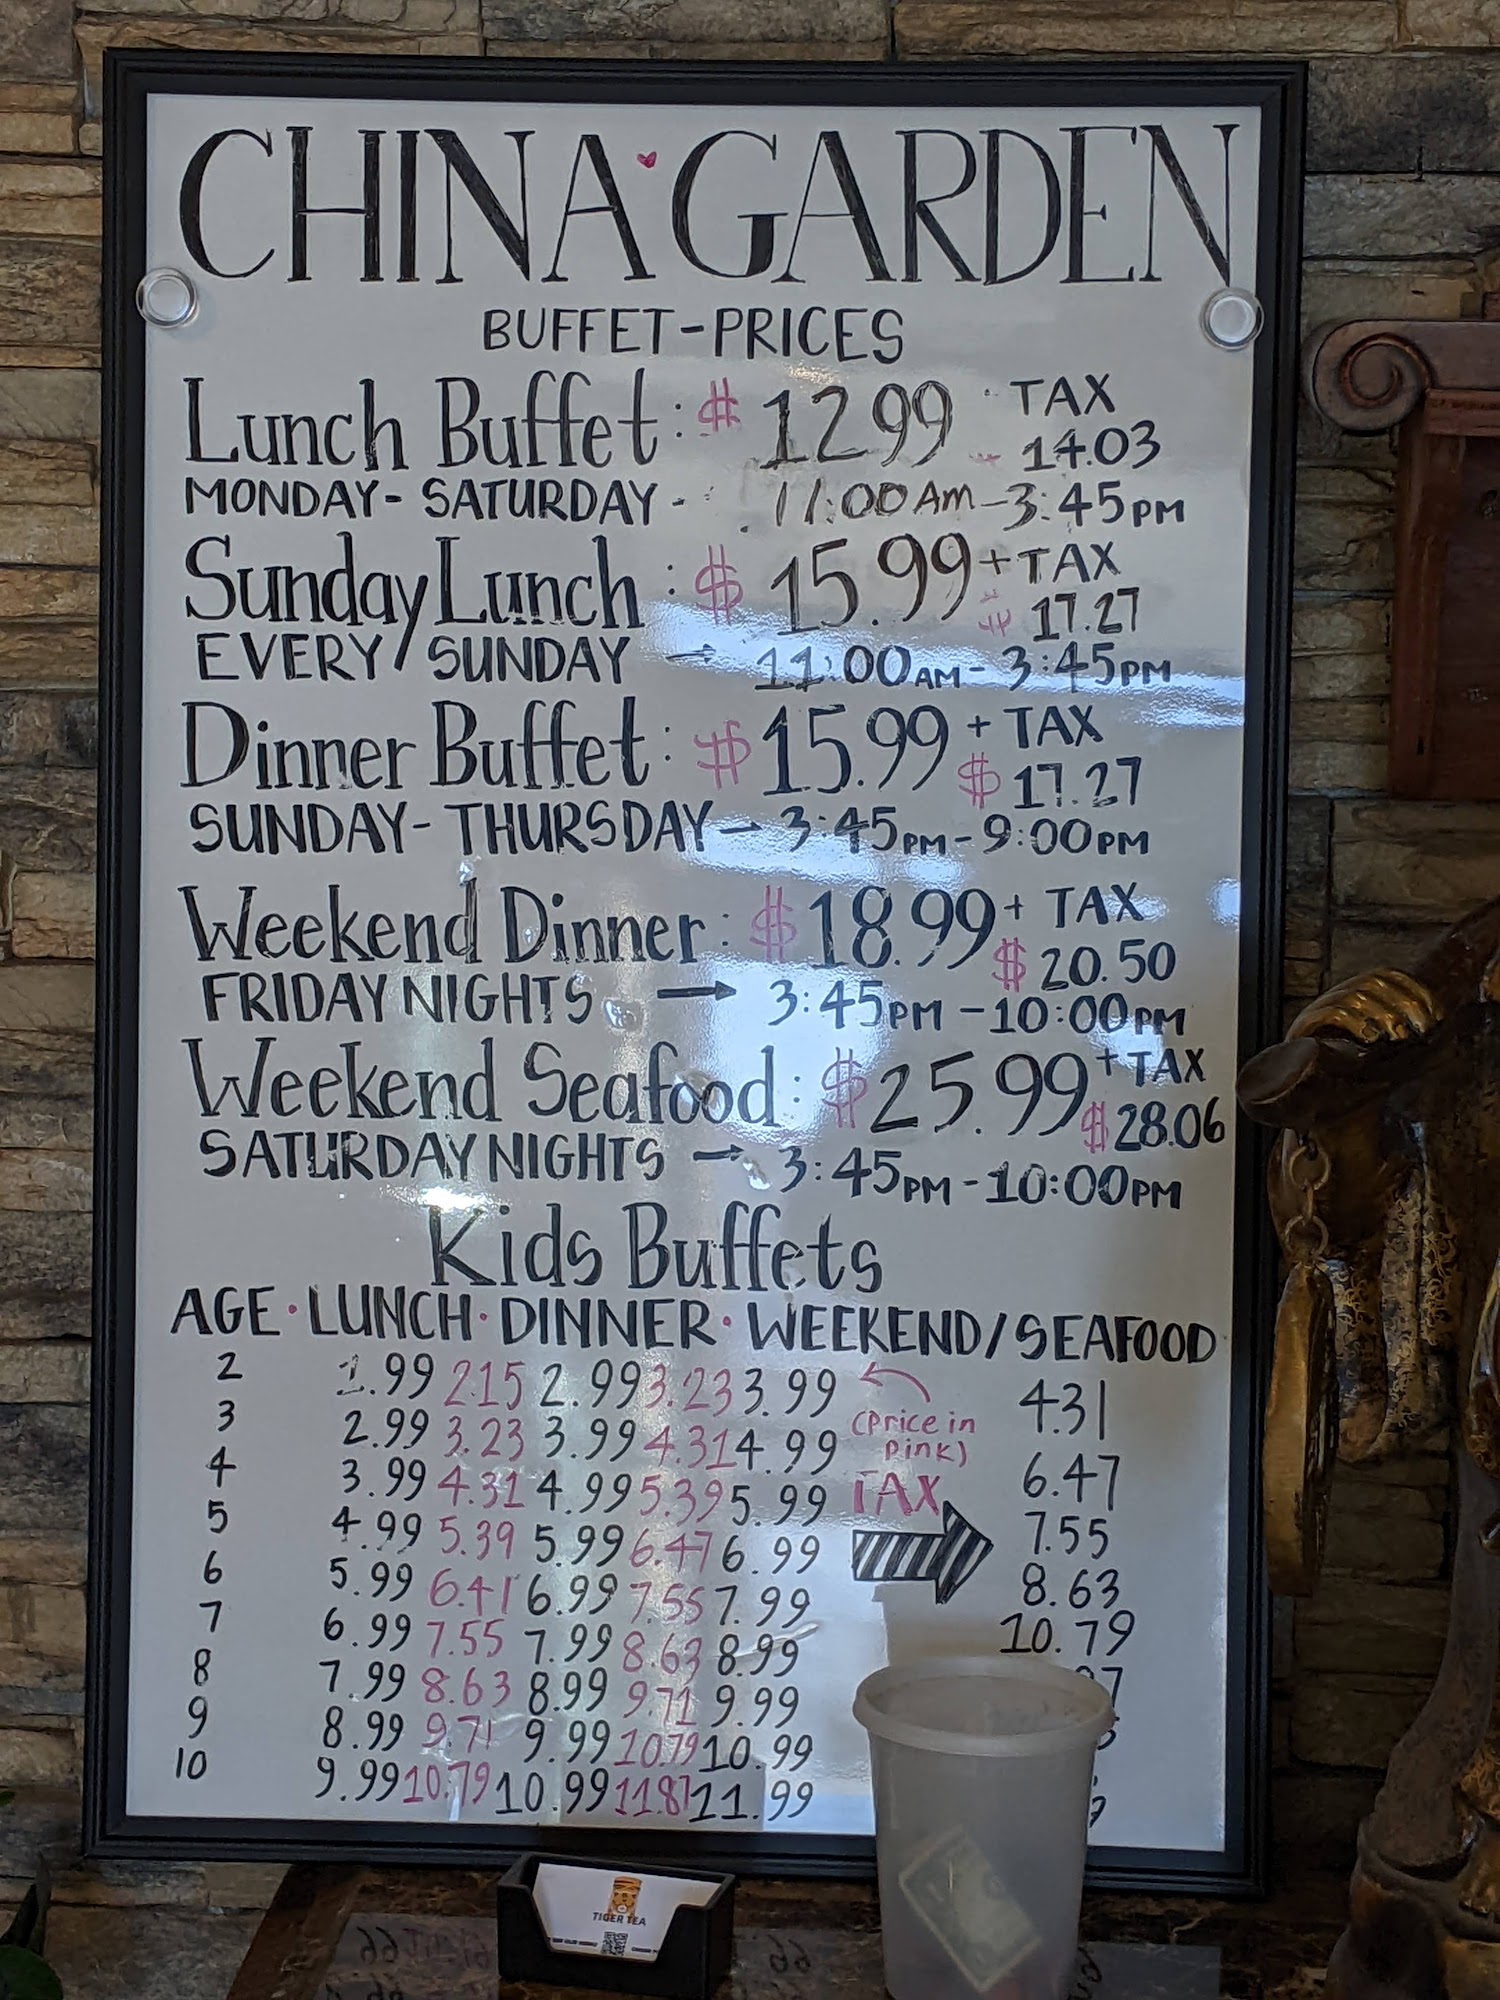 CHINA GARDEN
BUFFET-PRICES
Lunch Buffet: $ 12.99 TAX
14.03
MONDAY- SATURDAY - 11:00AM-3:45PM
Sunday Lunch: $ 15.99 + TAX
$ 17.27
EVERY SUNDAY → 11:00AM-3:45PM
Dinner Buffet: $ 15.99 + TAX
$ 17.27
SUNDAY- THURSDAY → 3:45PM-9:00PM
Weekend Dinner: $ 18.99 + TAX
$ 20.50
FRIDAY NIGHTS → 3:45PM-10:00PM
Weekend Seafood: $ 25.99 + TAX
$ 28.06
SATURDAY NIGHTS → 3:45PM-10:00PM
Kids Buffets
AGE · LUNCH · DINNER · WEEKEND/SEAFOOD
2 1.99 2.15 2.99 3.23 3.99 4.31
3 2.99 3.23 3.99 4.31 4.99 6.47
4 3.99 4.31 4.99 5.39 5.99 7.55
5 4.99 5.39 5.99 6.47 6.99 8.63
6 5.99 6.47 6.99 7.55 7.99 10.79
7 6.99 7.55 7.99 8.63 8.99
8 7.99 8.63 8.99 9.71 9.99
9 8.99 9.71 9.99 10.79 10.99
10 9.99 10.79 10.99 11.87 11.99
(Price in
pink)
TAX
TIGER TEA